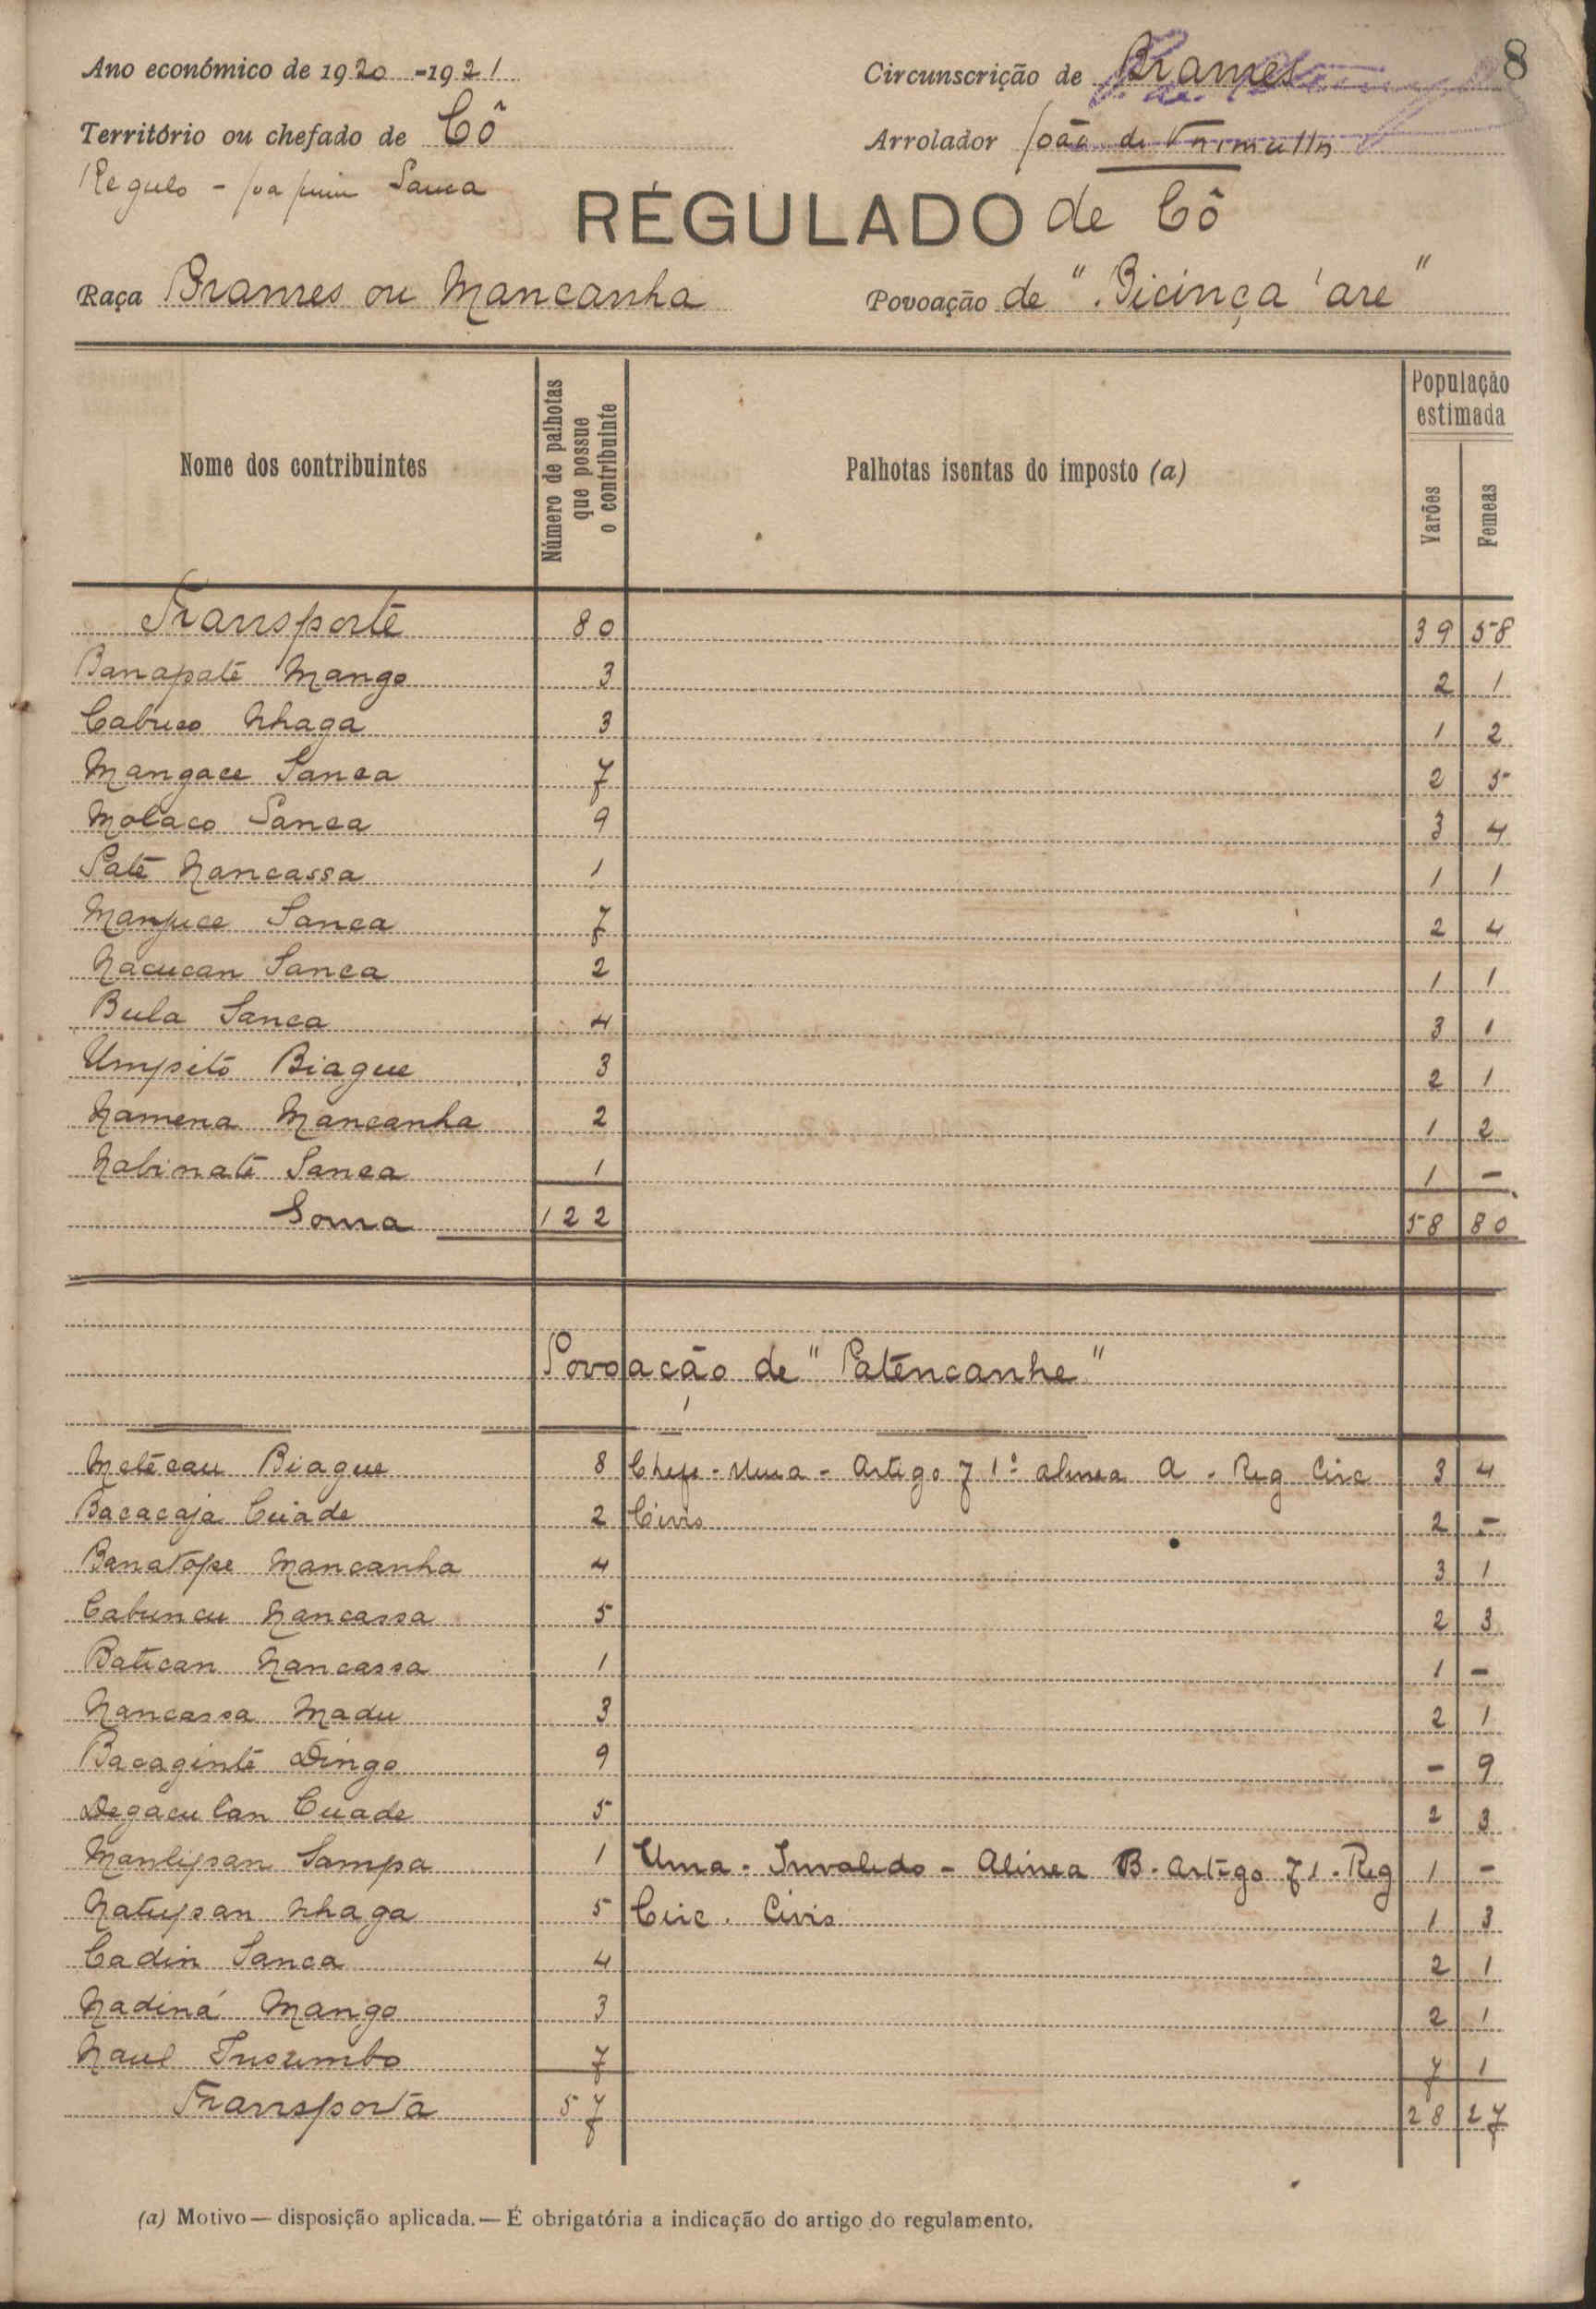 8
Ano económico de 1920-1921 Circunscrição de Brames
Território ou chefado de Cô Arrolador João de
Regulo - Sanca
RÉGULADO de Cô
Raça Brames ou Mancanha Povoação de "Bicinça 'are"
Nome dos contribuintes Número de palhotas que possue o contribuinte Palhotas isentas do imposto (a) População estimada Varões Femeas
Transporte 80 39 58
Banapaté Mango 3 2 1
Cabuco Nhaga 3 1 2
Mangace Sanca 7 2 5
Molaco Sanca 9 3 4
Paté Nancassa 1 1 1
Manjuce Sanca 7 2 4
Nacucan Sanca 2 1 1
Bula Sanca 4 3 1
Umpitó Biague 3 2 1
Namena Mancanha 2 1 2
Nabinaté Sanca 1 1 -
Soma 122 58 80
Povoação de "Patencanhe"
Metécau Biague 8 Chefe - Uma - Artigo 71º alinea A - Reg Circ 3 4
Bacacaja Cuade 2 Civis 2 -
Banatope Mancanha 4 3 1
Cabuncu Nancassa 5 2 3
Batican Nancassa 1 1 -
Nancassa Madu 3 2 1
Bacaginté Dingo 9 - 9
Degaculan Cuade 5 2 3
Manlipan Sampa 1 Uma - Invalido - Alinea B - Artigo 71 - Reg 1 -
Natupan Nhaga 5 Circ. Civis 1 3
Cadin Sanca 4 2 1
Nadiná Mango 3 2 1
Naul 7 7 1
Transporta 57 28 27
(a) Motivo — disposição aplicada. — É obrigatória a indicação do artigo do regulamento.